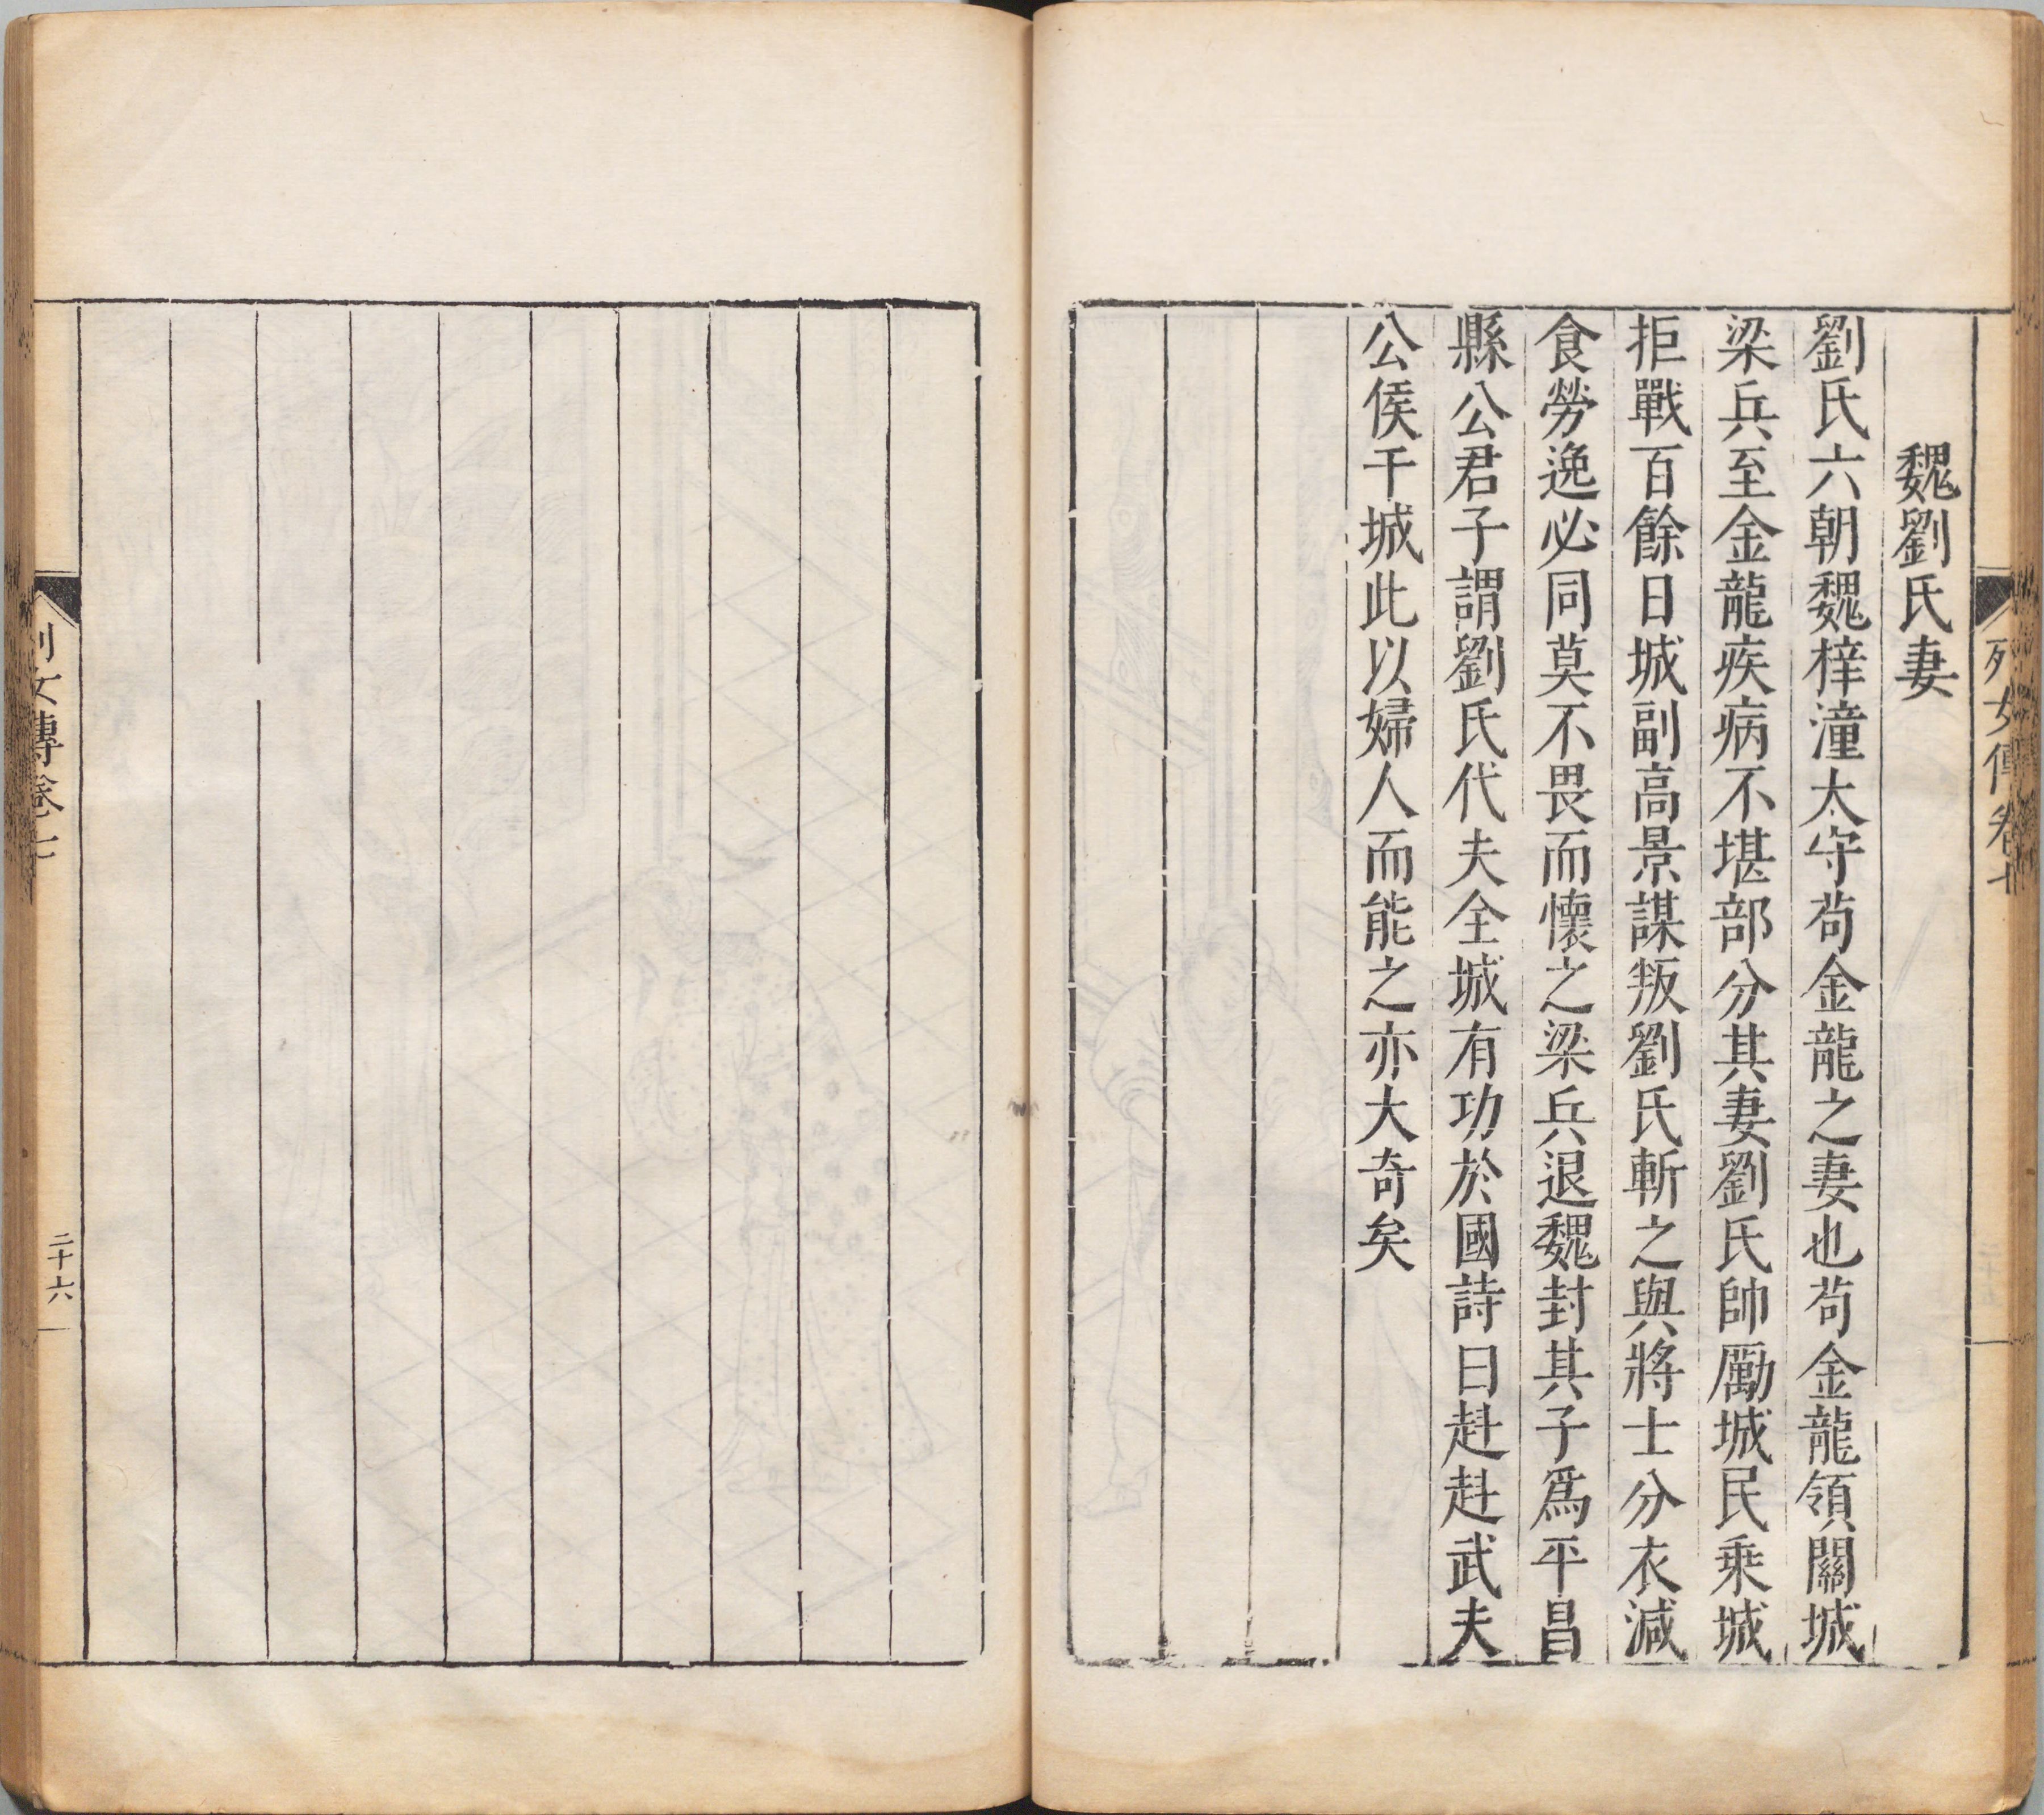 列女傳卷七
魏劉氏妻
劉氏六朝魏梓潼太守苟金龍之妻也苟金龍領關城
梁兵至金龍疾病不堪部分其妻劉氏帥厲城民乘城
拒戰百餘日城副高景謀叛劉氏斬之與將士分衣減
食勞逸必同莫不畏而懷之梁兵退魏封其子爲平昌
縣公君子謂劉氏代夫全城有功於國詩曰赳赳武夫
公侯干城此以婦人而能之亦大奇矣
列女傳卷七
二十六